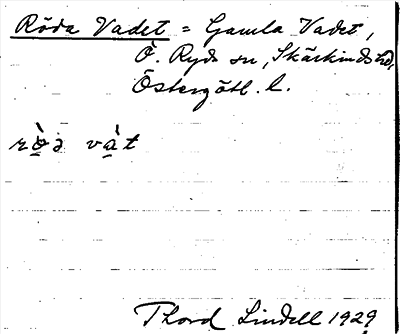 Röda Vadet = Gamla Vadet,
Ö. Ryds sn, Skärkinds hd,
Östergötl. l.
Thord Lindell 1929